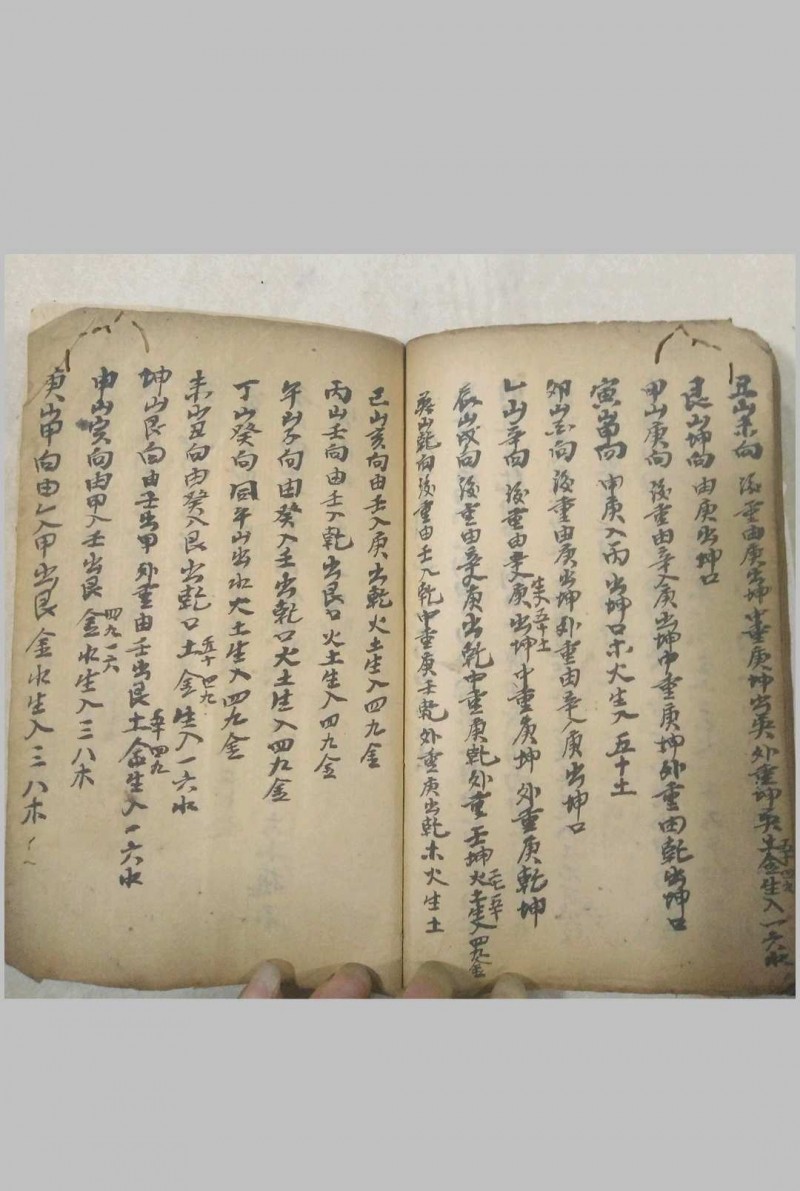 丑山未向 後重由庚出坤中重庚坤出巽外重坤巽土金生入一六水
艮山坤向 由庚出坤口
甲山庚向 後重由辛入庚出坤中重庚坤外重由乾出坤口
寅山申向 申庚入丙出坤口木火生入五十土
卯山酉向 後重由庚出坤外重由辛入庚出坤口
乙山辛向 後重由辛入庚出坤中重庚坤外重庚乾坤
辰山戌向 後重由辛入庚出乾中重庚乾外重壬坤火土生入四九金
巽山乾向後重由壬入乾中重庚壬乾外重庚出乾木火生土
巳山亥向由壬入庚出乾火土生入四九金
丙山壬向由壬入乾出艮口火土生入四九金
午山子向由癸入壬出乾口火土生入四九金
丁山癸向同午山出水火土生入四九金
未山丑向由癸入艮出乾口土五十金四九生入一六水
坤山艮向由壬出甲外重由壬出艮土金生入一六水
申山寅向由甲入壬出艮金四九水一六生入三八木
庚山甲向由乙入甲出艮金水生入三八木